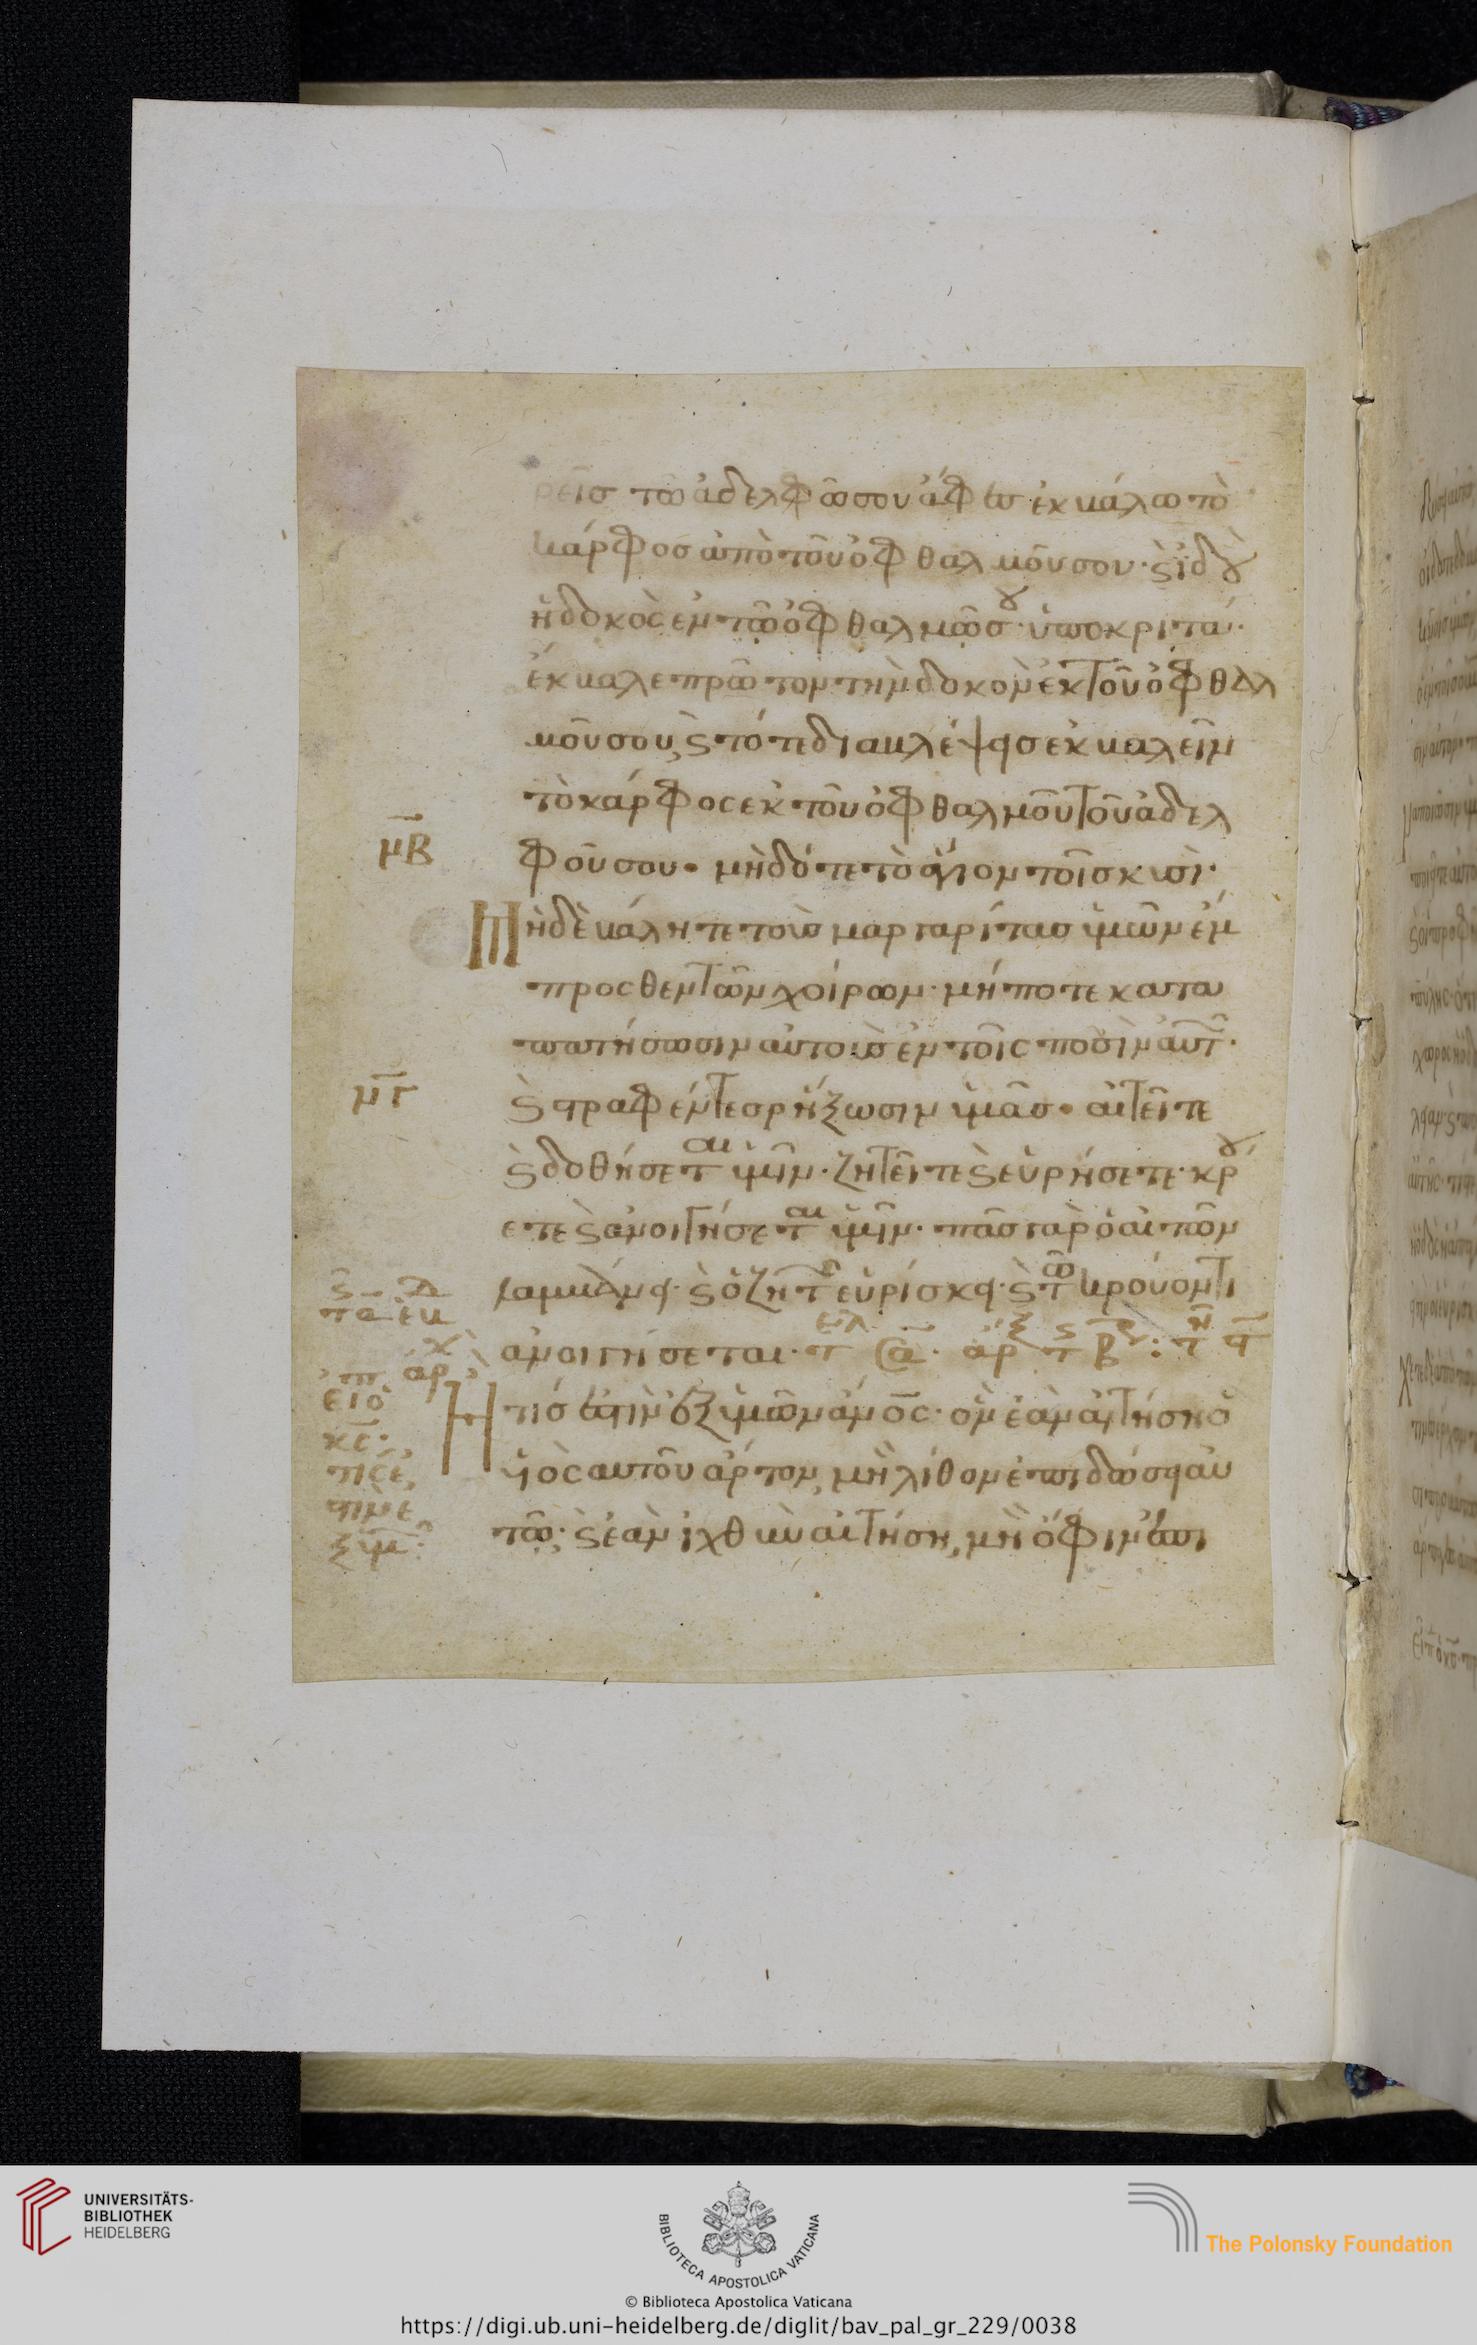 ρεῖσ τῶ ἀδελφῶ σου ἄφες ἐκβάλω τὸ
κάρφος ἀπὸ τοῦ ὀφθαλμοῦ σου· ϛ ἰδοὺ
ἡ δοκὸς ἐν τῶ ὀφθαλμῶ σου· ὑποκριτά·
ἔκβαλε πρῶτον τὴν δοκὸν ἐκ τοῦ ὀφθαλ
μοῦ σου, ϛ τότε διαβλέψεισ ἐκβαλεῖν
τὸ κάρφος ἐκ τοῦ ὀφθαλμοῦ τοῦ ἀδελ
μβ
φοῦ σου· μὴ δότε τὸ ἅγιον τοῖσ κυσί·
Μηδὲ βάλητε τοὺς μαργαρίτας ὑμῶν ἔμ
προσθεν τῶν χοίρων· μήποτε κατα
πατήσωσιν αὐτοὺς ἐν τοῖς ποσὶν αὐτ·
μγ
ϛτραφέντεσ ῥήξωσιν ὑμᾶσ· αἰτεῖτε
ϛ δοθήσεται ὑμῖν· ζητεῖτε ϛ εὑρήσετε· κρού
ετε ϛ ἀνοιγήσεται ὑμῖν· πᾶσ γὰρ ὁ αἰτῶν
λαμβάνει· ϛ ὁ ζητῶν εὑρίσκει· ϛ τῶ κρούοντι
ἀνοιγήσεται·
Η τίσ ἐστιν ἐξ ὑμῶν ἀνος· ὃν ἐὰν αἰτήση ὁ
υἱὸς αὐτοῦ ἄρτον, μὴ λίθον ἐπιδώσει αὐ
τῶ; ϛ ἐὰν ἰχθὺν αἰτήση, μὴ ὄφιν ἐπι
UNIVERSITÄTS-
BIBLIOTHEK
HEIDELBERG
BIBLIOTECA APOSTOLICA VATICANA
The Polonsky Foundation
© Biblioteca Apostolica Vaticana
https://digi.ub.uni-heidelberg.de/diglit/bav_pal_gr_229/0038